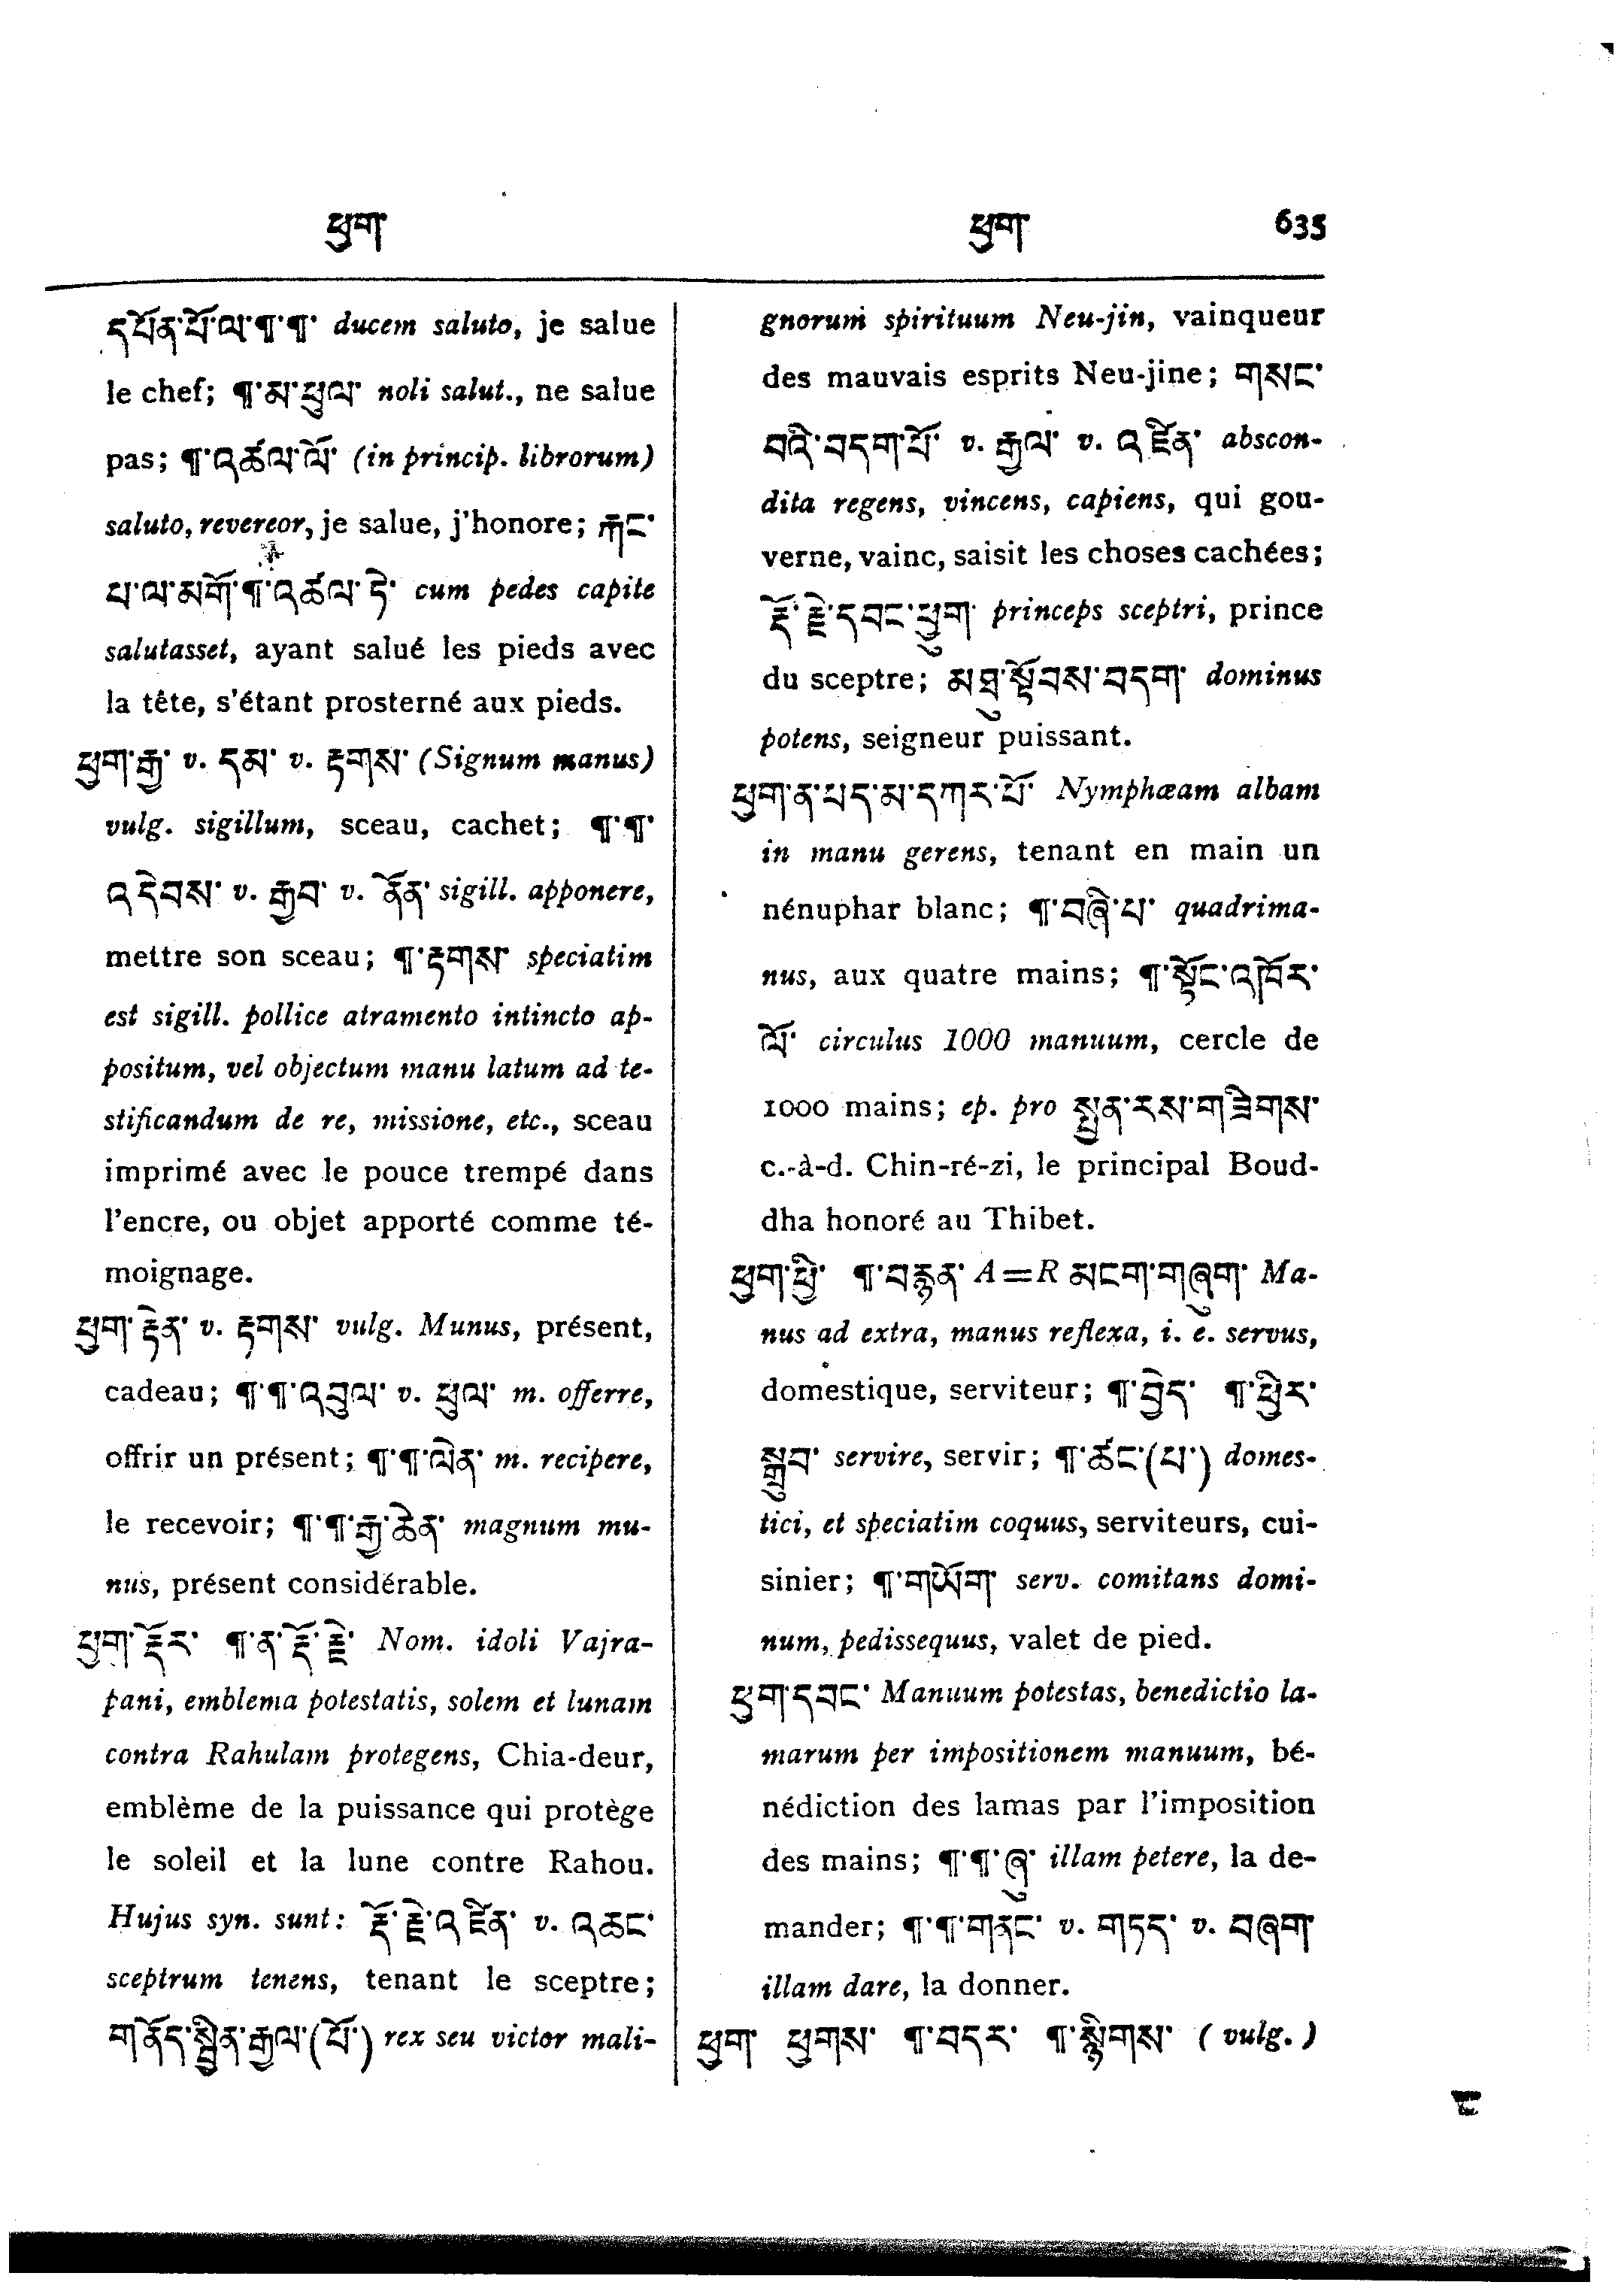 ཕྱག་ ཕྱག་ 635
དཔོན་པོ་ལ་¶་¶་ ducem saluto, je salue
le chef; ¶་མ་ཕུལ་ noli salut., ne salue
pas; ¶་འཚལ་ལོ་ (in princip. librorum)
saluto, revereor, je salue, j'honore; རྐང་
པ་ལ་མགོ་¶་འཚལ་ཏེ་ cum pedes capite
salutasset, ayant salué les pieds avec
la tête, s'étant prosterné aux pieds.
ཕྱག་རྒྱ་ v. དམ་ v. རྟགས་ (Signum manus)
vulg. sigillum, sceau, cachet; ¶་¶་
འདེབས་ v. རྒྱབ་ v. ནོན་ sigill. apponere,
mettre son sceau; ¶་རྟགས་ speciatim
est sigill. pollice atramento intincto ap-
positum, vel objectum manu latum ad te-
stificandum de re, missione, etc., sceau
imprimé avec le pouce trempé dans
l'encre, ou objet apporté comme té-
moignage.
ཕྱག་རྟེན་ v. རྟགས་ vulg. Munus, présent,
cadeau; ¶་¶་འབུལ་ v. ཕུལ་ m. offerre,
offrir un présent; ¶་¶་ལེན་ m. recipere,
le recevoir; ¶་¶་རྒྱ་ཆེན་ magnum mu-
nus, présent considérable.
ཕྱག་རྡོར་ ¶་ན་རྡོ་རྗེ་ Nom. idoli Vajra-
pani, emblema potestatis, solem et lunam
contra Rahulam protegens, Chia-deur,
emblème de la puissance qui protège
le soleil et la lune contre Rahou.
Hujus syn. sunt: རྡོ་རྗེ་འཛིན་ v. འཆང་
sceptrum tenens, tenant le sceptre;
གནོད་སྦྱིན་རྒྱལ་(པོ་) rex seu victor mali-
gnorum spirituum Neu-jin, vainqueur
des mauvais esprits Neu-jine; གསང་
བའི་བདག་པོ་ v. རྒྱལ་ v. འཛིན་ abscon-
dita regens, vincens, capiens, qui gou-
verne, vainc, saisit les choses cachées;
རྡོ་རྗེ་དབང་ཕྱུག་ princeps sceptri, prince
du sceptre; མཐུ་སྟོབས་བདག་ dominus
potens, seigneur puissant.
ཕྱག་ན་པད་མ་དཀར་པོ་ Nymphæam albam
in manu gerens, tenant en main un
nénuphar blanc; ¶་བཞི་པ་ quadrima-
nus, aux quatre mains; ¶་སྟོང་འཁོར་
ལོ་ circulus 1000 manuum, cercle de
1000 mains; ep. pro སྤྱན་རས་གཟིགས་
c.-à-d. Chin-ré-zi, le principal Boud-
dha honoré au Thibet.
ཕྱག་ཕྱི་ ¶་བརྙན་ A=R མངག་གཞུག་ Ma-
nus ad extra, manus reflexa, i. e. servus,
domestique, serviteur; ¶་བྱེད་ ¶་ཕྱིར་
སྒྲུབ་ servire, servir; ¶་ཚང་(པ་) domes-
tici, et speciatim coquus, serviteurs, cui-
sinier; ¶་གཡོག་ serv. comitans domi-
num, pedissequus, valet de pied.
ཕྱག་དབང་ Manuum potestas, benedictio la-
marum per impositionem manuum, bé-
nédiction des lamas par l'imposition
des mains; ¶་¶་ཞུ་ illam petere, la de-
mander; ¶་¶་གནང་ v. གཏད་ v. བཞག་
illam dare, la donner.
ཕྱག་ ཕྱགས་ ¶་བདར་ ¶་སྙིགས་ (vulg.)